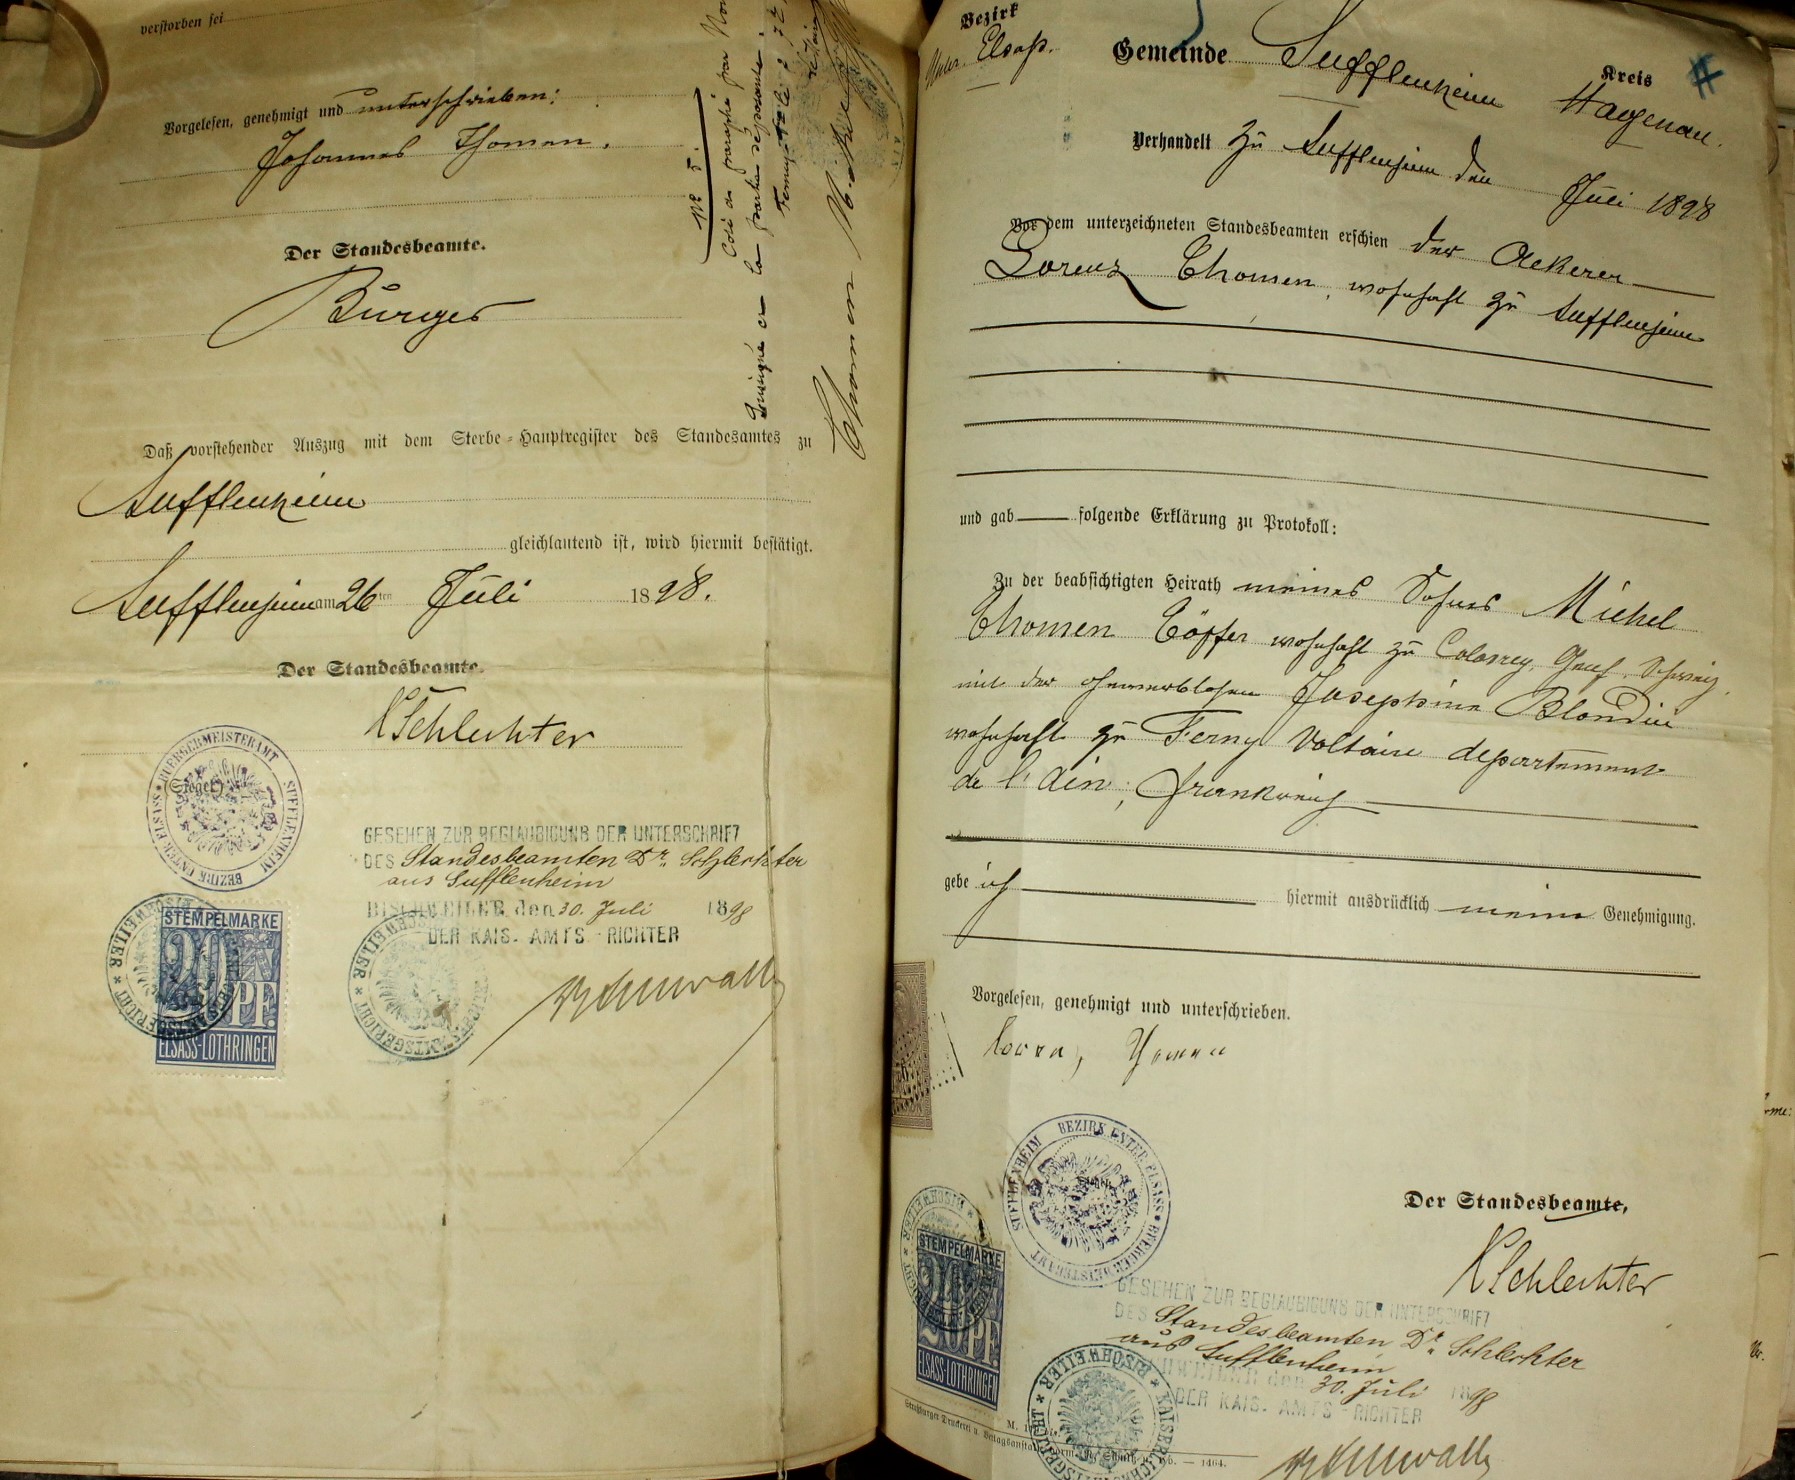 verstorben sei
Vorgelesen, genehmigt und unterschrieben:
Johannes Thomen.
Der Standesbeamte.
Burger
Daß vorstehender Auszug mit dem Sterbe-Hauptregister des Standesamtes zu
Sufflenheim
gleichlautend ist, wird hiermit bestätigt.
Sufflenheim am 26ten Juli 1898.
Der Standesbeamte.
Schlechter
BUERGERMEISTERAMT SUFFLENHEIM BEZIRK UNTER ELSASS
(Siegel)
GESEHEN ZUR BEGLAUBIGUNG DER UNTERSCHRIFT
DES Standesbeamten Dr. Schlechter
aus Sufflenheim
BISCHWEILER, den 30. Juli 1898
DER KAIS. AMTS-RICHTER
STEMPELMARKE
20 PF.
ELSASS-LOTHRINGEN
AMTSGERICHT BISCHWEILER
No 5.
Coté et paraphé par
la partie déposante.
Thomen M.
Bezirk
Unter Elsaß.
Gemeinde Sufflenheim
Kreis
Hagenau.
Verhandelt zu Sufflenheim den Juli 1898
Vor dem unterzeichneten Standesbeamten erschien der Ackerer
Lorenz Thomen, wohnhaft zu Sufflenheim
und gab folgende Erklärung zu Protokoll:
Zu der beabsichtigten Heirath meines Sohnes Michel
Thomen Töpfer wohnhaft zu Colovrey, Genf, Schweiz,
mit der gewerblosen Josephine Blondin
wohnhaft zu Ferny Voltaire departement
de l'Ain, Frankreich
gebe ich hiermit ausdrücklich meine Genehmigung.
Vorgelesen, genehmigt und unterschrieben.
Der Standesbeamte,
Schlechter
SUFFLENHEIM BEZIRK UNTER ELSASS BUERGERMEISTERAMT
STEMPELMARKE
20 PF.
ELSASS-LOTHRINGEN
GESEHEN ZUR BEGLAUBIGUNG DER UNTERSCHRIFT
DES Standesbeamten Dr. Schlechter
aus Sufflenheim
den 30. Juli 1898
DER KAIS. AMTS-RICHTER
KAISERLICHES AMTSGERICHT BISCHWEILER
Straßburger Druckerei u. Verlagsanstalt
1464.